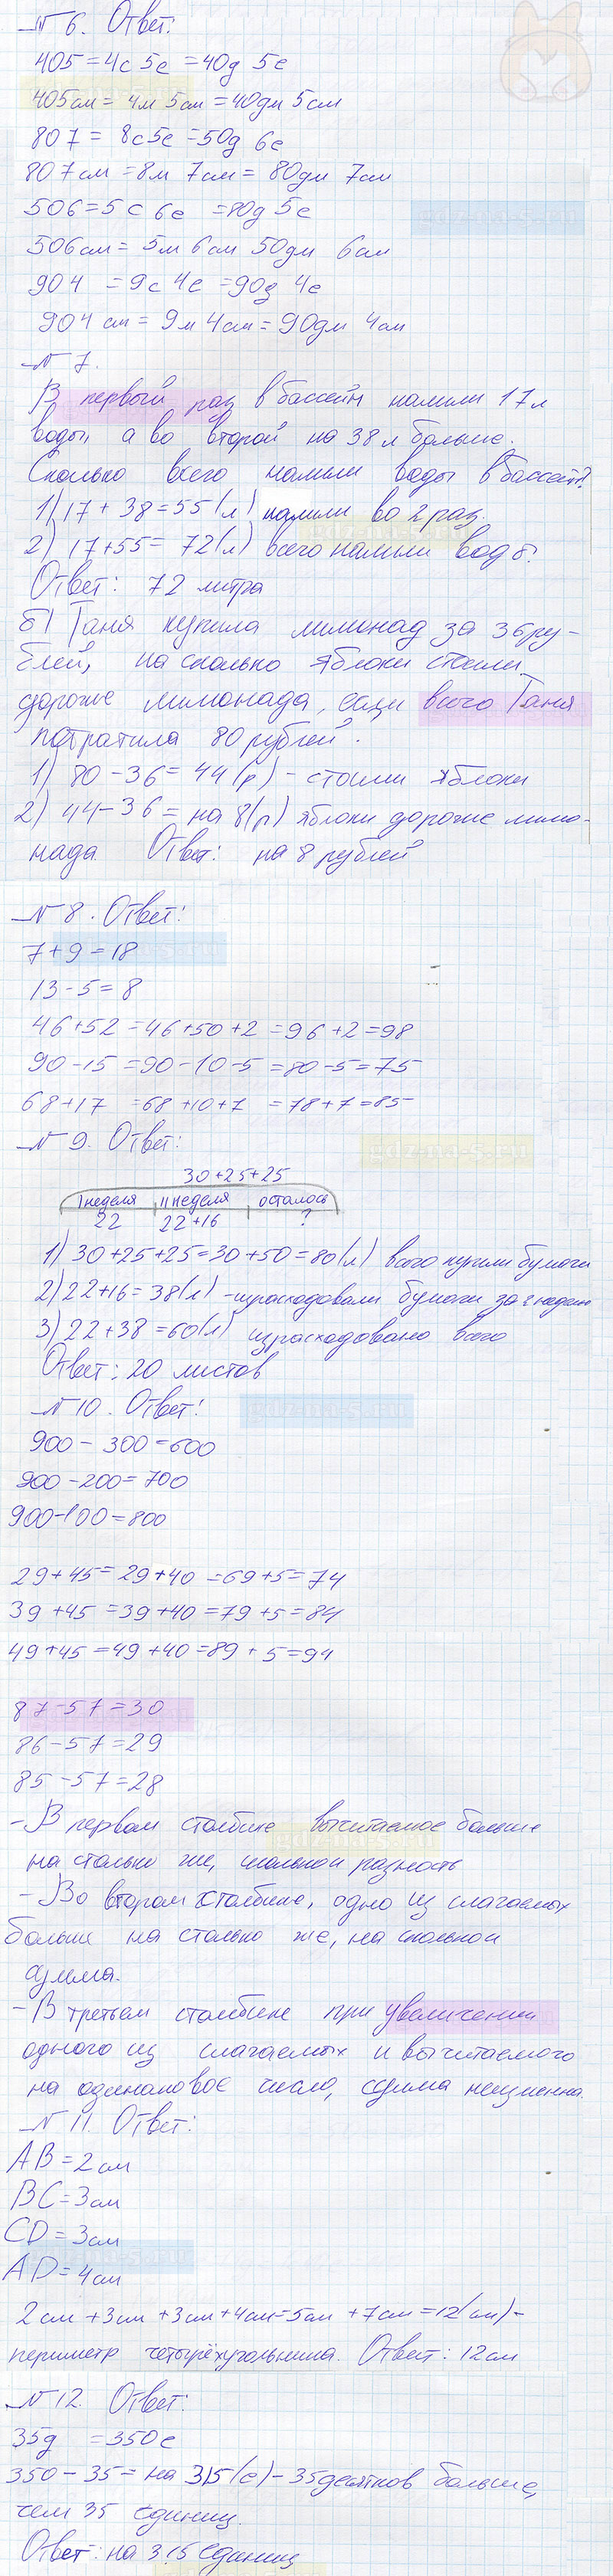 № 6. Ответ:
405 = 4с 5е = 40д 5е
405см = 4м 5см = 40дм 5см
807 = 8с5е = 50д 6е
807см = 8м 7см = 80дм 7см
506 = 5с 6е = 80д 5е
506см = 5м 6см 50дм 6см
904 = 9с 4е = 90д 4е
904 см = 9м 4см = 90дм 4см
№ 7.
В первый раз в бассейн налили 17л
воды, а во второй на 38 л больше.
Сколько всего налили воды в бассейн?
1) 17 + 38 = 55 (л) налили во 2 раз.
2) 17+55 = 72 (л) всего налили воды.
Ответ: 72 литра
б) Таня купила лимонад за 36 ру-
блей, на сколько яблоки стоили
дороже лимонада, если всего Таня
потратила 80 рублей.
1) 80 - 36 = 44 (р) - стоили яблоки
2) 44 - 36 = на 8 (р) яблоки дороже лимо-
нада. Ответ: на 8 рублей
№ 8. Ответ:
7 + 9 = 18
13 - 5 = 8
46 + 52 = 46 + 50 + 2 = 96 + 2 = 98
90 - 15 = 90 - 10 - 5 = 80 - 5 = 75
68 + 17 = 68 + 10 + 7 = 78 + 7 = 85
gdz-na-5.ru
№ 9. Ответ:
30 + 25 + 25
I неделя II неделя осталось
22 22+16 ?
1) 30 + 25 + 25 = 30 + 50 = 80 (л) всего купили бумаги
2) 22 + 16 = 38 (л) - израсходовали бумаги за 2 неделю
3) 22 + 38 = 60 (л) израсходовано всего
Ответ: 20 листов
№ 10. Ответ:
gdz-na-5.ru
900 - 300 = 600
900 - 200 = 700
900 - 100 = 800
29 + 45 = 29 + 40 = 69 + 5 = 74
39 + 45 = 39 + 40 = 79 + 5 = 84
49 + 45 = 49 + 40 = 89 + 5 = 94
87 - 57 = 30
86 - 57 = 29
85 - 57 = 28
- В первом столбике вычитаемое больше
на столько же, сколькои разность
- Во втором столбике, одно из слагаемых
больше на столько же, на сколькои
сумма.
- В третьем столбике при увеличении
одного из слагаемых и вычитаемого
на одинаковое число, сумма неизменна.
№ 11. Ответ:
AB = 2см
BC = 3см
CD = 3см
AD = 4см
2см + 3см + 3см + 4см = 5см + 7см = 12(см) -
периметр четырёхугольника. Ответ: 12см
№ 12. Ответ:
35д = 350е
350 - 35 = на 315 (е) - 35 десятков больше,
чем 35 единиц.
Ответ: на 315 единиц